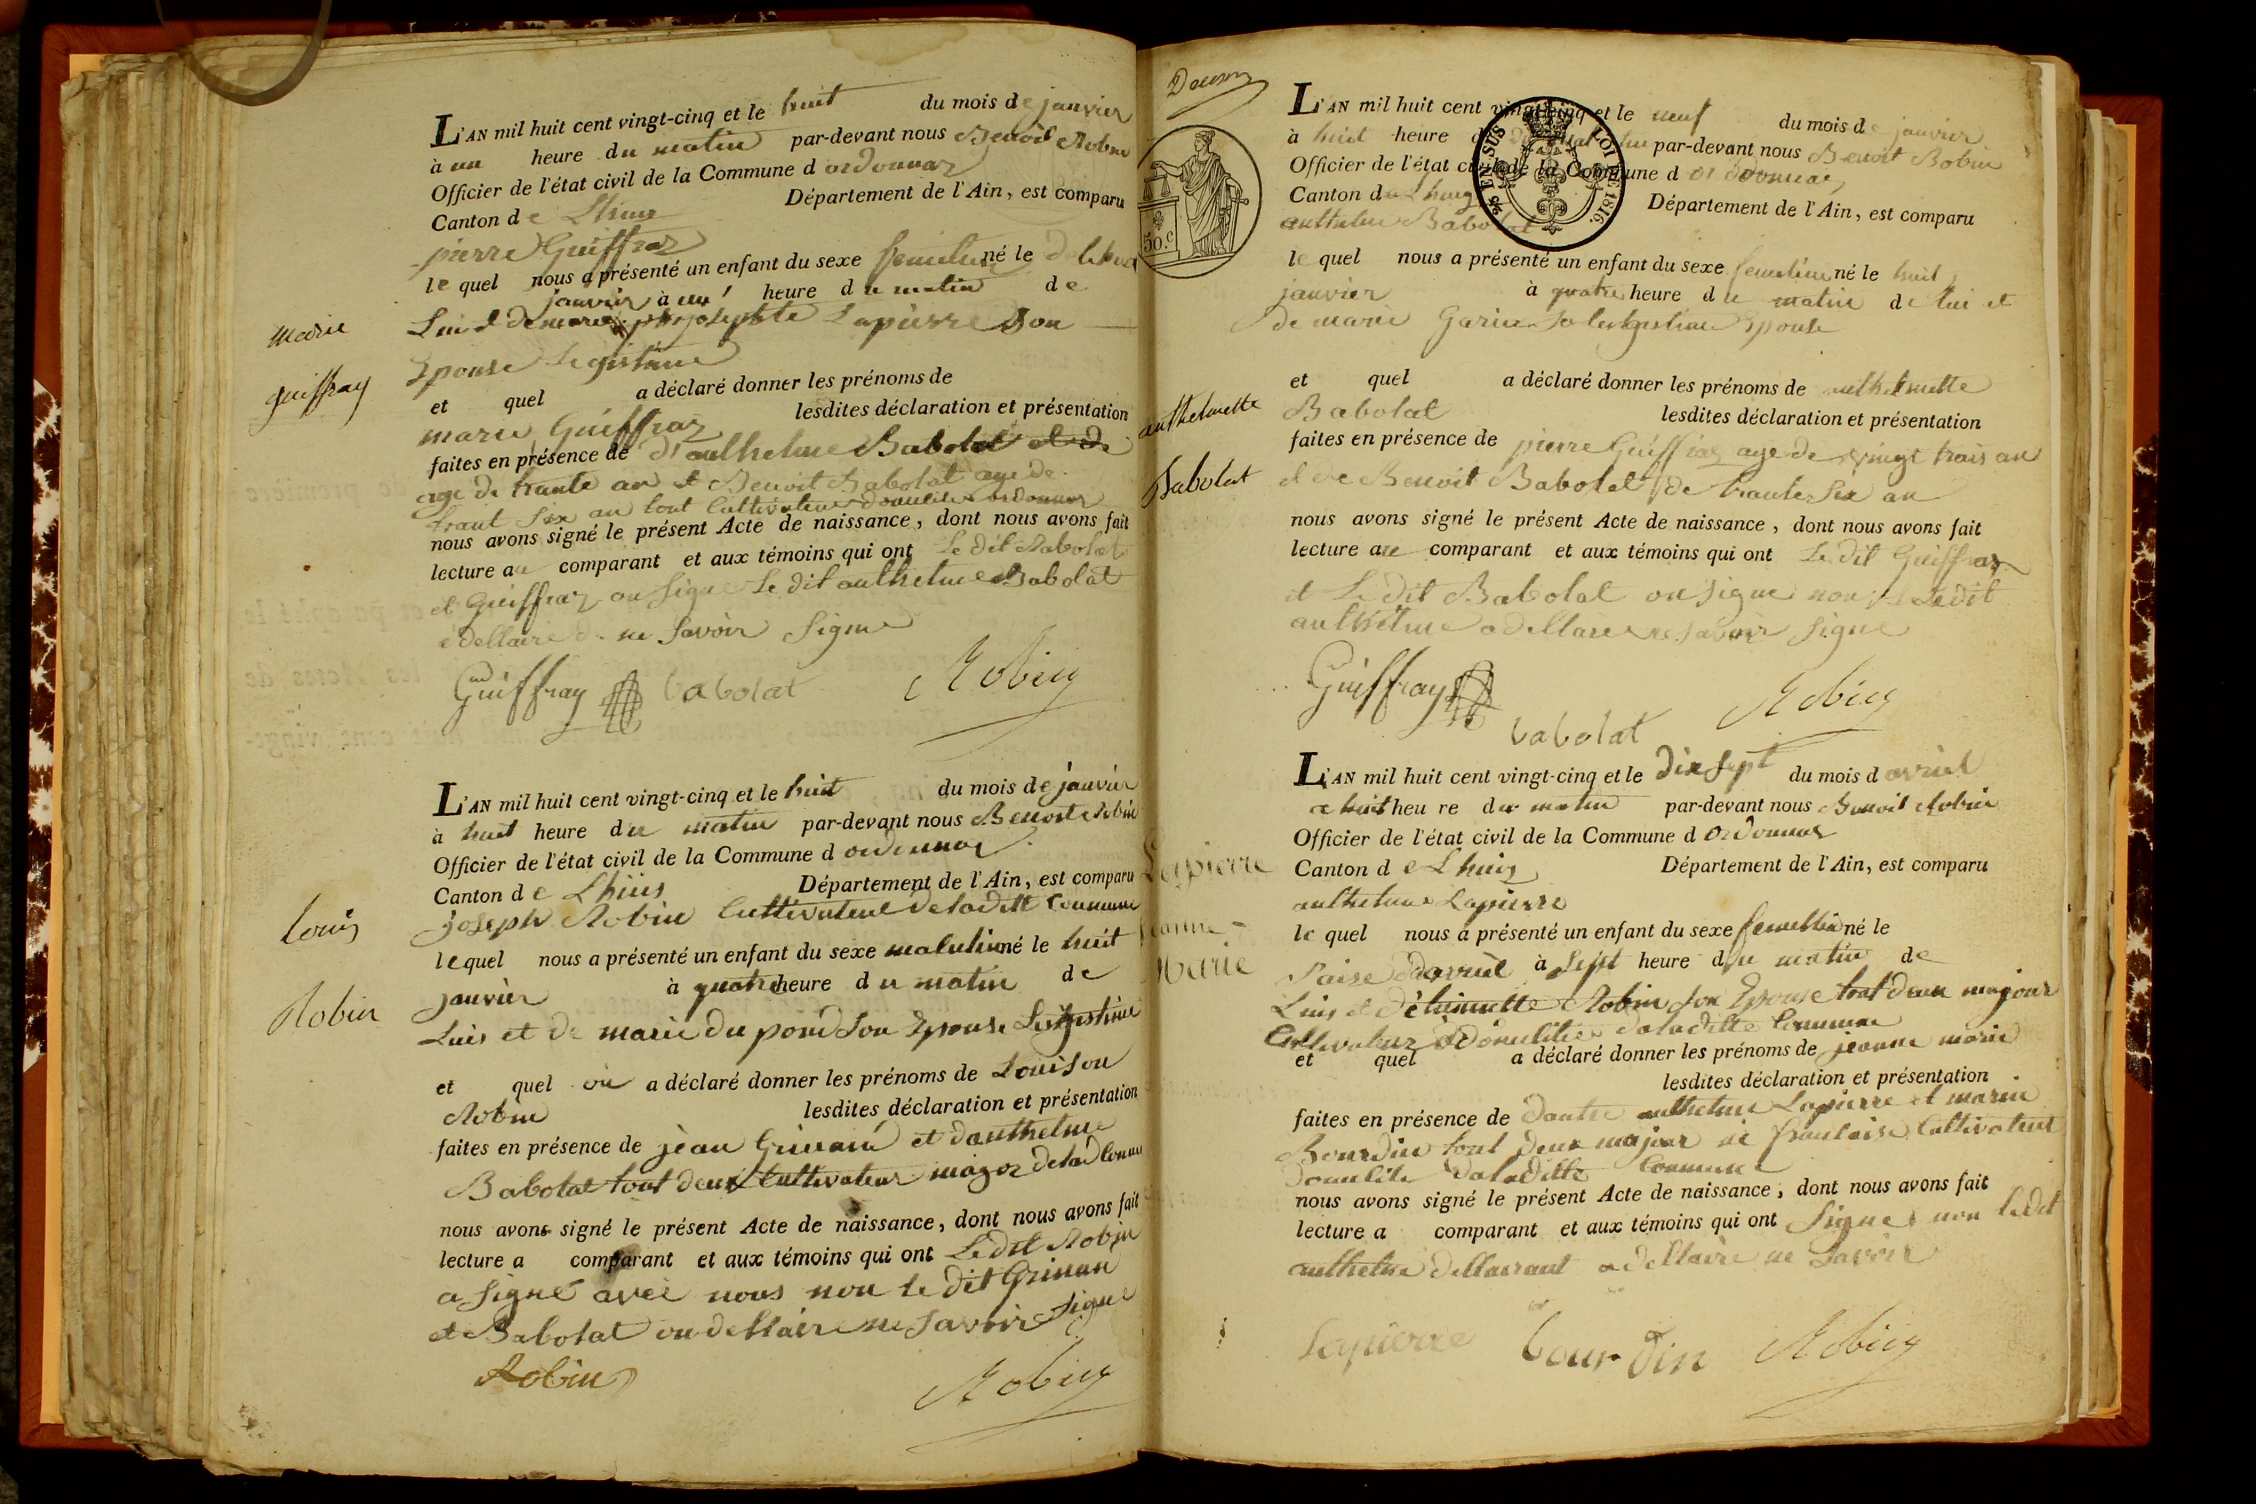 marie
guiffray
L'AN mil huit cent vingt-cinq et le huit du mois de janvier
à un heure du matin par-devant nous Benoit Robin
Officier de l'état civil de la Commune d ordonnaz
Canton de Lhuis Département de l'Ain, est comparu
pierre Guiffraz
le quel nous a présenté un enfant du sexe femeline né le
janvier à un heure du matin de
Lui et de marie josephte Lapierre Son
Epouse Legistime
et quel a déclaré donner les prénoms de
marie Guiffraz lesdites déclaration et présentation
faites en présence de d'anthelme Babolat et de
age de trante an et Benoit Babolat age de
trant Six an tout Cultivateur domicilie ordonnaz
nous avons signé le présent Acte de naissance, dont nous avons fait
lecture au comparant et aux témoins qui ont Le dit Babolat
et Guiffraz on Signe Le dit anthelme Babolat
a dellaire de ne Savoir Signe
Guiffray babolat Robin
louis
Robin
L'AN mil huit cent vingt-cinq et le huit du mois de janvier
à huit heure du matin par-devant nous Benoit Robin
Officier de l'état civil de la Commune d ordonnaz
Canton de Lhuis Département de l'Ain, est comparu
joseph Robin Cultivateur de la ditte Commune
le quel nous a présenté un enfant du sexe masculin né le huit
janvier à quatre heure du matin de
Luis et de marie du pond Son Epouse Legistime
et quel on a déclaré donner les prénoms de Louison
Robin lesdites déclaration et présentation
faites en présence de jean Grinan et danthelme
Babolat tout deux Cultivateur major
nous avons signé le présent Acte de naissance, dont nous avons fait
lecture a comparant et aux témoins qui ont Le dit Robin
a Signé avec nous non le dit Grinan
et Babolat on dellaire ne Savoir Signe
Robin Robin
50.c
EN SUS LOI DE 1816
anthelmette
Babolat
L'AN mil huit cent vingt-cinq et le neuf du mois de janvier
à huit heure du matin par-devant nous Benoit Robin
Officier de l'état civil de la Commune d ordonnaz
Canton de Lhuis Département de l'Ain, est comparu
anthelme Babolat
le quel nous a présenté un enfant du sexe femeline né le huit
janvier à quatre heure du matin de lui et
de marie Garin Sa Legestime Epouse
et quel a déclaré donner les prénoms de anthelmette
Babolat lesdites déclaration et présentation
faites en présence de pierre Guiffraz age de vingt trais an
et de Benoit Babolat de trante Six an
nous avons signé le présent Acte de naissance, dont nous avons fait
lecture au comparant et aux témoins qui ont Le dit Guiffraz
et Le dit Babolat on Signe non Le dit
anthelme a dellare ne Savoir Signe
Guiffray babolat Robin
Lapierre
jeanne
Marie
L'AN mil huit cent vingt-cinq et le dix Sept du mois d avriel
a huit heure du matin par-devant nous Benoit Robin
Officier de l'état civil de la Commune d ordonnaz
Canton de Lhuis Département de l'Ain, est comparu
anthelme Lapierre
le quel nous a présenté un enfant du sexe femellin né le
Saise davriel à Sept heure du matin de
Luis et détiennette Robin Son Epouse tout deux majour
Cultivateur domicilie daladitte Commune
et quel a déclaré donner les prénoms de jeanne marie
lesdites déclaration et présentation
faites en présence de dautre anthelme Lapierre et marin
Bourdin tout deux major Cultivateur
domicilie daladitte Commune
nous avons signé le présent Acte de naissance, dont nous avons fait
lecture a comparant et aux témoins qui ont Signe non ledit
anthelme dellairant a dellaire ne Savoir
Lapierre bourdin Robin